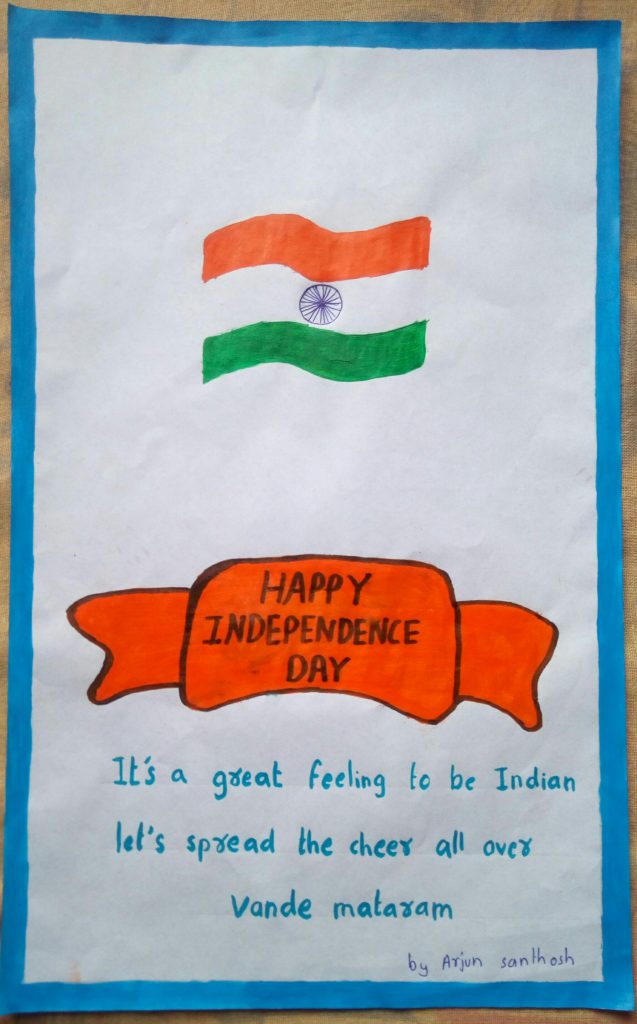 HAPPY
INDEPENDENCE
DAY
It's a great feeling to be Indian
let's spread the cheer all over
Vande mataram
by Arjun santhosh